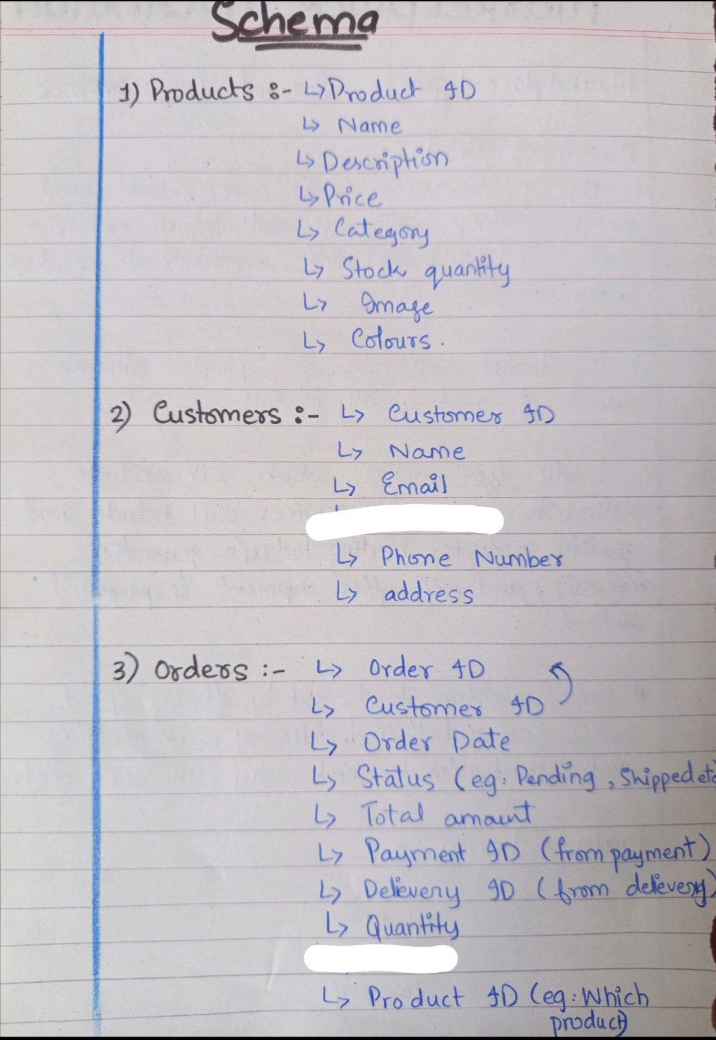 Schema
1) Products :- ↳ Product ID
↳ Name
↳ Description
↳ Price
↳ Category
↳ Stock quantity
↳ Image
↳ Colours.
2) Customers :- ↳ Customer ID
↳ Name
↳ Email
↳ Phone Number
↳ address
3) Orders :- ↳ Order ID
↳ Customer ID
↳ Order Date
↳ Status (eg: Pending, Shipped etc
↳ Total amount
↳ Payment ID (from payment)
↳ Delievery ID (from delievery)
↳ Quantity
↳ Product ID (eg: Which
product)